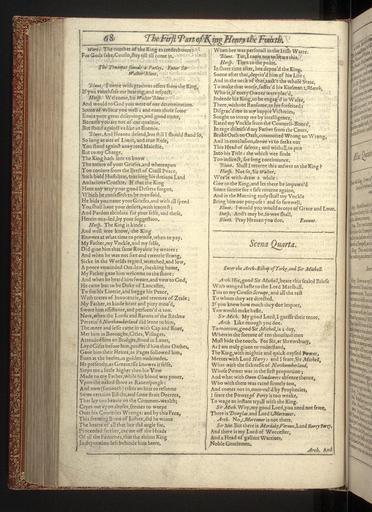 68 The First Part of King Henry the Fourth.
Worc. The number of the King exceedeth ours:
For Gods sake, Cousin, stay till all come in.
The Trumpet sounds a Parley. Enter Sir
Walter Blunt.
Blunt. I come with gracious offers from the King,
If you vouchsafe me hearing, and respect.
Hotsp. Welcome, Sir Walter Blunt:
And would to God you were of our determination.
Some of us love you well: and even those some
Envie your great deservings, and good name,
Because you are not of our qualitie,
But stand against us like an Enemie.
Blunt. And Heaven defend, but still I should stand so,
So long as out of Limit, and true Rule,
You stand against anoynted Majestie.
But to my Charge.
The King hath sent to know
The nature of your Griefes, and whereupon
You conjure from the Brest of Civill Peace,
Such bold Hostilitie, teaching his dutious Land
Audacious Crueltie. If that the King
Have any way your good Deserts forgot,
Which he confesseth to be manifold,
He bids you name your Griefes, and with all speed
You shall have your desires, with interest;
And Pardon absolute for your selfe, and these,
Herein mis-led, by your suggestion.
Hotsp. The King is kinde:
And well wee know, the King
Knowes at what time to promise, when to pay.
My Father, my Unckle, and my selfe,
Did give him that same Royaltie he weares:
And when he was not sixe and twentie strong,
Sicke in the Worlds regard, wretched, and low,
A poore unminded Out-law, sneaking home,
My Father gave him welcome to the shore:
And when he heard him sweare, and vow to God,
He came but to be Duke of Lancaster,
To sue his Liverie, and begge his Peace,
With teares of Innocencie, and tearmes of Zeale;
My Father, in kinde heart and pitty mov'd,
Swore him assistance, and perform'd it too.
Now, when the Lords and Barons of the Realme
Perceiv'd Northumberland did leane to him,
The more and lesse came in with Cap and Knee,
Met him in Boroughs, Cities, Villages,
Attended him on Bridges, stood in Lanes,
Layd Gifts before him, proffer'd him their Oathes,
Gave him their Heires, as Pages followed him,
Even at the heeles, in golden multitudes.
He presently, as Greatnesse knowes it selfe,
Steps me a little higher then his Vow
Made to my Father, while his blood was poore,
Upon the naked shore at Ravenspurgh:
And now (forsooth) takes on him to reforme
Some certaine Edicts, and some strait Decrees,
That lay too heavie on the Common-wealth;
Cryes out upon abuses, seemes to weepe
Over his Countries Wrongs: and by this Face,
This seeming Brow of Justice, did he winne
The hearts of all that hee did angle for.
Proceeded further, cut me off the Heads
Of all the Favorites, that the absent King
In deputation left behinde him heere,
When hee was personall in the Irish Warre.
Blunt. Tut, I came not to heare this.
Hotsp. Then to the point.
In short time after, hee depos'd the King.
Soone after that, depriv'd him of his Life:
And in the neck of that, task't the whole State.
To make that worse, suffer'd his Kinsman March,
Who is, if every Owner were plac'd,
Indeede his King, to be engag'd in Wales,
There, without Ransome, to lye forfeited:
Disgrac'd me in my happie Victories,
Sought to intrap me by intelligence,
Rated my Unckle from the Councell-Boord,
In rage dismiss'd my Father from the Court,
Brake Oath on Oath, committed Wrong on Wrong,
And in conclusion, drove us to seeke out
This Head of safetie; and withall, to prie
Into his Title: the which wee finde
Too indirect, for long continuance.
Blunt. Shall I returne this answer to the King?
Hotsp. Not so, Sir Walter.
Wee'le with-draw a while:
Goe to the King, and let there be impawn'd
Some suretie for a safe returne againe,
And in the Morning early shall my Unckle
Bring him our purpose: and so farewell.
Blunt. I would you would accept of Grace and Love.
Hotsp. And't may be, so wee shall.
Blunt. Pray Heaven you doe. Exeunt.
Scena Quarta.
Enter the Arch-Bishop of Yorke, and Sir Michell.
Arch. Hie, good Sir Michell, beare this sealed Briefe
With winged haste to the Lord Marshall,
This to my Cousin Scroope, and all the rest
To whom they are directed.
If you knew how much they doe import,
You would make haste.
Sir Mich. My good Lord, I guesse their tenor.
Arch. Like enough you doe.
To morrow, good Sir Michell, is a day,
Wherein the fortune of ten thousand men
Must bide the touch. For Sir, at Shrewsbury,
As I am truly given to understand,
The King, with mightie and quick raysed Power,
Meetes with Lord Harry: and I feare, Sir Michell,
What with the sicknesse of Northumberland,
Whose Power was in the first proportion;
And what with Owen Glendowers absence thence,
Who with them was rated firmely too,
And comes not in, over-rul'd by Prophecies,
I feare the Power of Percy is too weake,
To wage an instant tryall with the King.
Sir Mich. Why, my good Lord, you need not feare,
There is Dowglas, and Lord Mortimer.
Arch. No, Mortimer is not there.
Sir Mic. But there is Mordake, Vernon, Lord Harry Percy,
And there is my Lord of Worcester,
And a Head of gallant Warriors,
Noble Gentlemen.
Arch. And